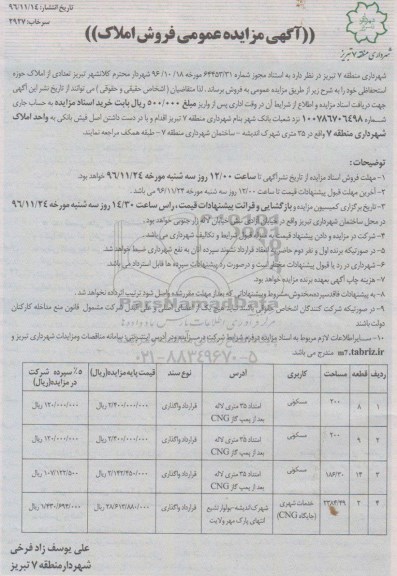 تاریخ انتشار: ۹۶/۱۱/۱۴
سرخاب: ۲۹۲۷
شهرداری منطقه ۷ تبریز
((آگهی مزایده عمومی فروش املاک))
شهرداری منطقه ۷ تبریز در نظر دارد به استناد مجوز شماره ۶۴۴۵۳/۳۱ مورخه ۹۶/۱۰/۱۸ شهردار محترم کلانشهر تبریز تعدادی از املاک حوزه
استحفاظی خود را به شرح زیر از طریق مزایده عمومی به فروش برساند . لذا متقاضیان ( اشخاص حقیقی و حقوقی ) می توانند از تاریخ نشر این آگهی
جهت دریافت اسناد مزایده و اطلاع از شرایط آن در وقت اداری پس از واریز مبلغ ۵۰۰/۰۰۰ ریال بابت خرید اسناد مزایده به حساب جاری
شماره ۱۰۰۷۸۶۷۰۶۴۹۸ نزد شعبات بانک شهر بنام شهرداری منطقه ۷ تبریز اقدام و با در دست داشتن اصل فیش بانکی به واحد املاک
شهرداری منطقه ۷ واقع در ۳۵ متری شهرک اندیشه – ساختمان شهرداری منطقه ۷ – طبقه همکف مراجعه نمایند.
توضیحات:
۱– مهلت فروش اسناد مزایده از تاریخ نشر آگهی تا ساعت ۱۲/۰۰ روز سه شنبه مورخه ۹۶/۱۱/۲۴ خواهد بود.
۲– آخرین مهلت قبول پیشنهادات قیمت تا ساعت ۱۲/۰۰ روز سه شنبه مورخه ۹۶/۱۱/۲۴ می باشد .
۳– تاریخ برگزاری کمیسیون مزایده و بازگشایی و قرائت پیشنهادات قیمت، راس ساعت ۱۴/۳۰ روز سه شنبه مورخه ۹۶/۱۱/۲۴
در محل ساختمان شهرداری تبریز واقع در خیابان لاله زار جنوبی خواهد بود.
۴– شرکت در مزایده و دادن پیشنهاد قیمت به منزله قبول شرایط و تکالیف شهرداری می باشد .
۵– در صورتیکه برنده اول و نفر دوم حاضر به انعقاد قرارداد نشوند سپرده آنان به نفع شهرداری ضبط خواهد شد.
۶– شهرداری در رد یا قبول پیشنهادات مختار است و درصورت رد پیشنهادات سپرده ها قابل استرداد می باشد.
۷– هزینه چاپ آگهی بعهده برنده مزایده خواهد بود.
۸– به پیشنهادات فاقد سپرده، مخدوش، مشروط و پیشنهاداتی که بعد از مهلت مقرر شده واصل شود ترتیب اثر داده نخواهد شد.
۹– در صورتیکه شرکت کنندگان اشخاص حقوقی باشند نباید هیچیک از اعضای اصلی و علی البدل شرکت مشمول قانون منع مداخله کارکنان
دولت باشند
۱۰– سایر اطلاعات لازم مربوط به اسناد مزایده در فرم شرایط شرکت در مزایده و در آدرس اینترنتی سامانه مناقصات و مزایدات شهرداری تبریز و
m7.tabriz.ir مندرج می باشد
پارس نماد داده ها
۰۲۱-۸۸۳۴۹۶۷۰-۵
ردیف قطعه مساحت کاربری آدرس نوع سند قیمت پایه مزایده(ریال) ۵٪ سپرده شرکت در مزایده(ریال)
۱ ۸ ۲۰۰ مسکونی امتداد ۳۵ متری لاله بعد از پمپ گاز CNG قرارداد واگذاری ۲/۴۰۰/۰۰۰/۰۰۰ ریال ۱۲۰/۰۰۰/۰۰۰ ریال
۲ ۹ ۲۰۰ مسکونی امتداد ۳۵ متری لاله بعد از پمپ گاز CNG قرارداد واگذاری ۲/۴۰۰/۰۰۰/۰۰۰ ریال ۱۲۰/۰۰۰/۰۰۰ ریال
۳ ۱۳ ۱۸۶/۳۰ مسکونی امتداد ۳۵ متری لاله بعد از پمپ گاز CNG قرارداد واگذاری ۲/۱۴۲/۴۵۰/۰۰۰ ریال ۱۰۷/۱۲۲/۵۰۰ ریال
۴ ۲ ۲۳۸۴/۴۹ خدمات شهری (جایگاه CNG) شهرک اندیشه–بولوار تشیع انتهای پارک مهر ولایت قرارداد واگذاری ۲۸/۶۱۳/۸۸۰/۰۰۰ ریال ۱/۴۳۰/۶۹۴/۰۰۰ ریال
علی یوسف زاد فرخی
شهردار منطقه ۷ تبریز